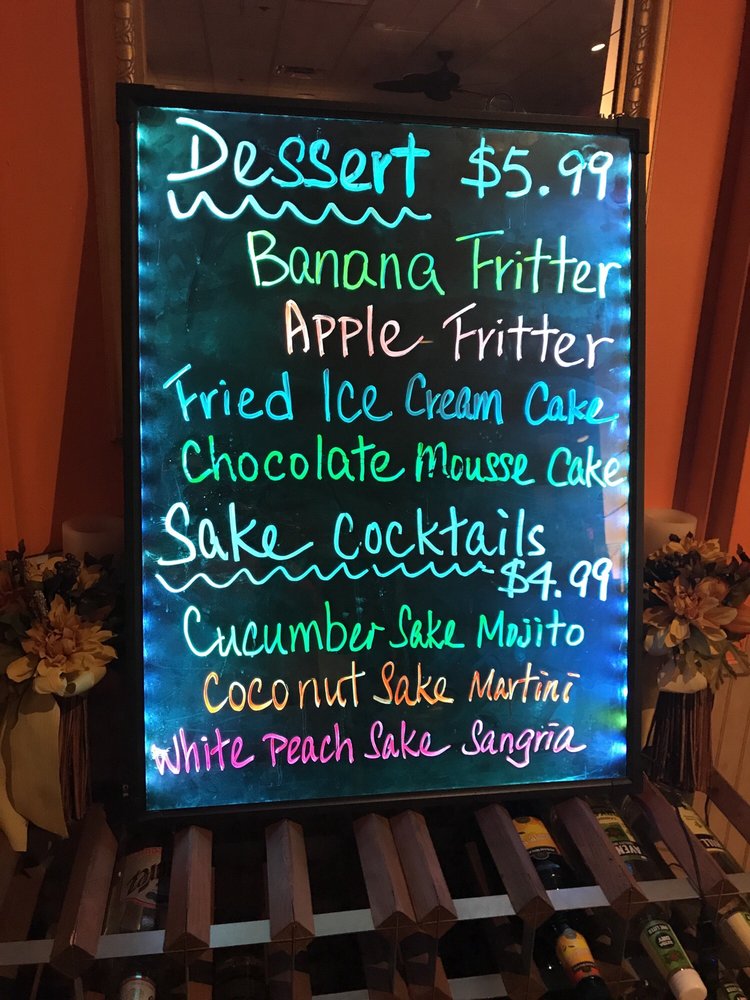 Dessert $5.99
Banana Fritter
Apple Fritter
Fried Ice Cream Cake
Chocolate Mousse Cake
Sake Cocktails
$4.99
Cucumber Sake Mojito
Coconut Sake Martini
White Peach Sake Sangria